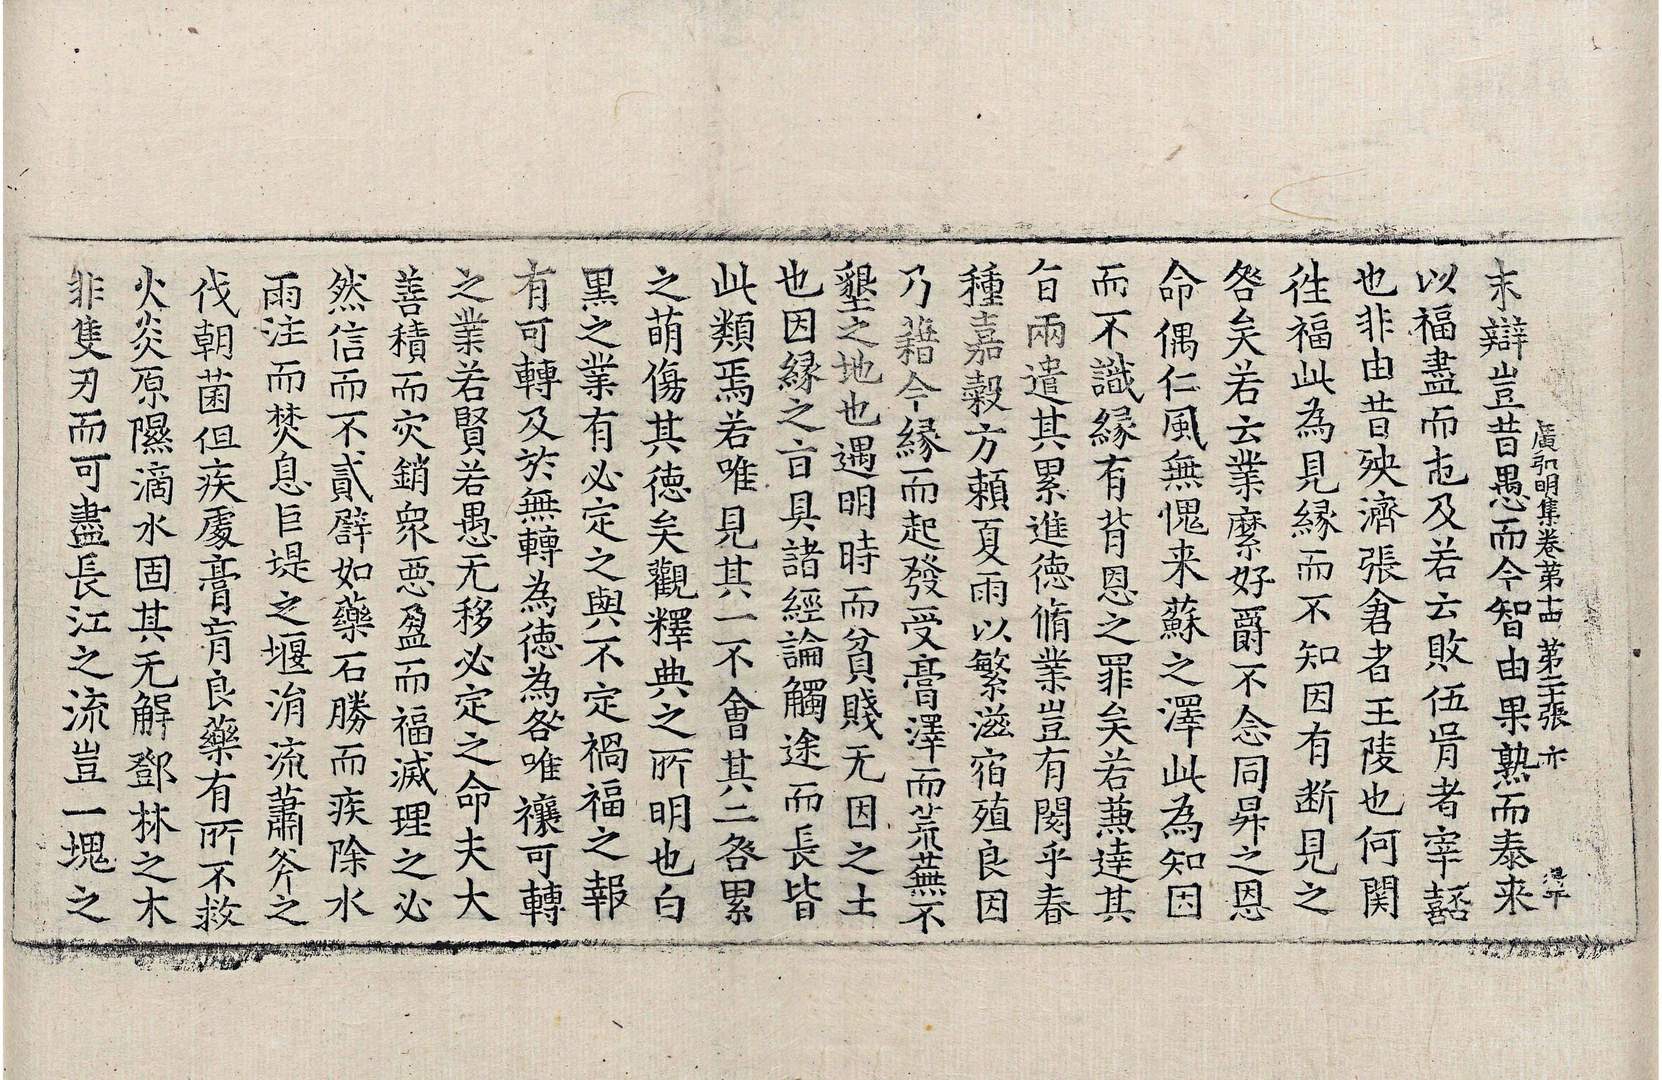 廣弘明集卷苐十四 苐二十張 亦
末辯豈昔愚而今智由果熟而泰来
以福盡而否及若云敗伍胥者宰嚭
也非由昔殃濟張倉者王陵也何関
徃福此為見縁而不知因有断見之
咎矣若云業縻好爵不念同昇之恩
命偶仁風無愧来蘇之澤此為知因
而不識縁有背恩之罪矣若兼達其
旨兩遣其累進德脩業豈有閡乎春
種嘉穀方賴夏雨以繁滋宿殖良因
乃藉今縁而起發受膏澤而荒蕪不
墾之地也遇明時而貧賤无因之土
也因縁之旨具諸經論觸途而長皆
此類焉若唯見其一不會其二咎累
之萌傷其德矣觀釋典之所明也白
黒之業有必定之與不定禍福之報
有可轉及於無轉為德為咎唯禳可轉
之業若賢若愚无移必定之命夫大
善積而灾銷衆惡盈而福滅理之必
然信而不貳譬如藥石勝而疾除水
雨注而焚息巨堤之堰涓流蕭斧之
伐朝菌但疾處膏肓良藥有所不救
火炎原隰滴水固其无解鄧林之木
非隻刃而可盡長江之流豈一塊之